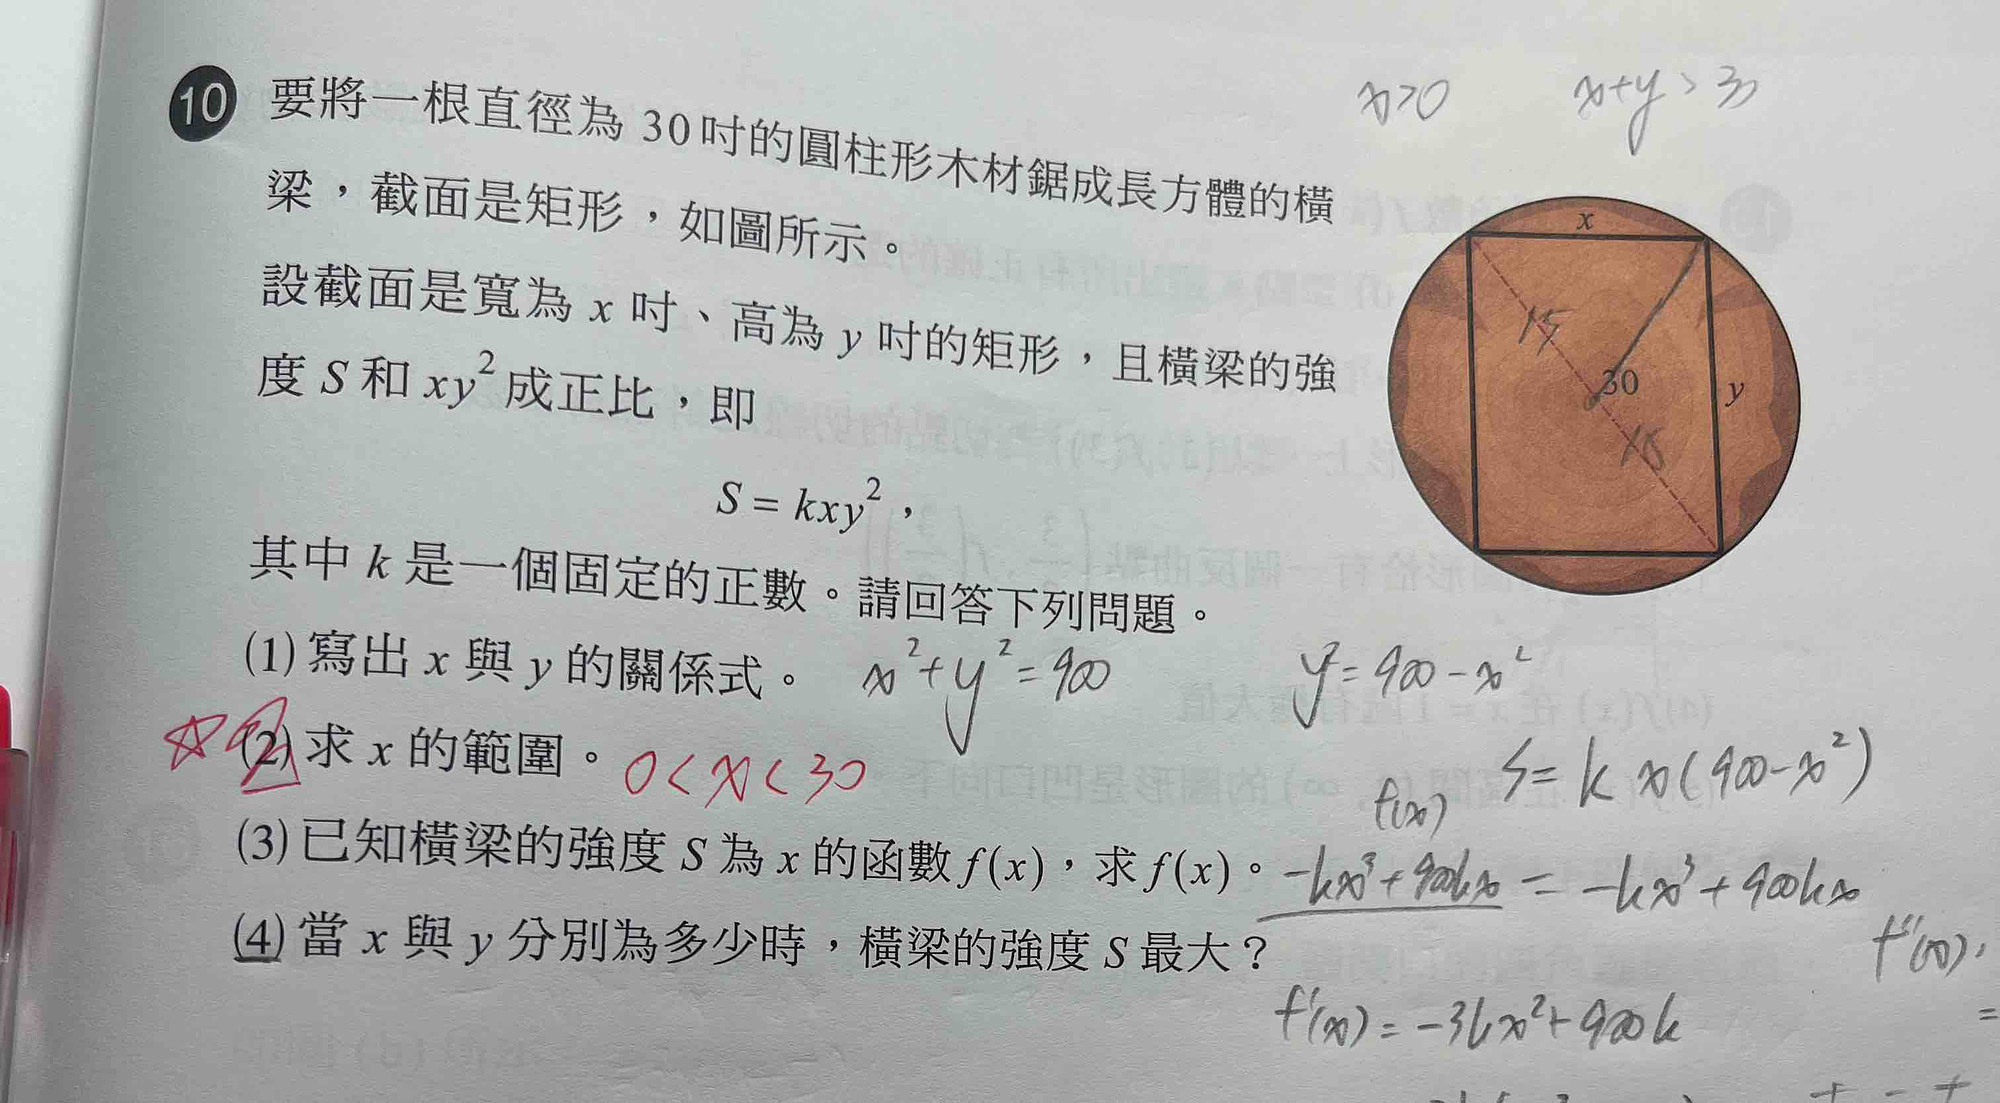 10 要將一根直徑為 30 吋的圓柱形木材鋸成長方體的橫
梁，截面是矩形，如圖所示。
設截面是寬為 x 吋、高為 y 吋的矩形，且橫梁的強
度 S 和 xy² 成正比，即
S = kxy²，
其中 k 是一個固定的正數。請回答下列問題。
(1) 寫出 x 與 y 的關係式。 x² + y² = 900
y² = 900 - x²
(2) 求 x 的範圍。 0 < x < 30
S = k x (900 - x²)
f(x)
(3) 已知橫梁的強度 S 為 x 的函數 f(x)，求 f(x)。 -kx³ + 900kx = -kx³ + 900kx
(4) 當 x 與 y 分別為多少時，橫梁的強度 S 最大？
f''(x)
=
f'(x) = -3kx² + 900k
x > 0
x + y > 30
x
15
30
y
15